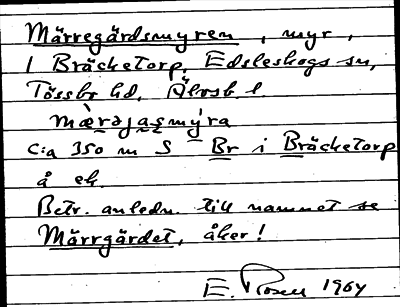 Märregärdsmyren, myr,
i Bräcketorp, Edsleskogs sn,
Tössbo hd, Älvsb. l
mæ̀rəjaṣmy̕ra
c:a 350 m S Br i Bräcketorp
å ek.
Betr. anledn. till namnet se
Märrgärdet, åker!
E. Rosell 1964